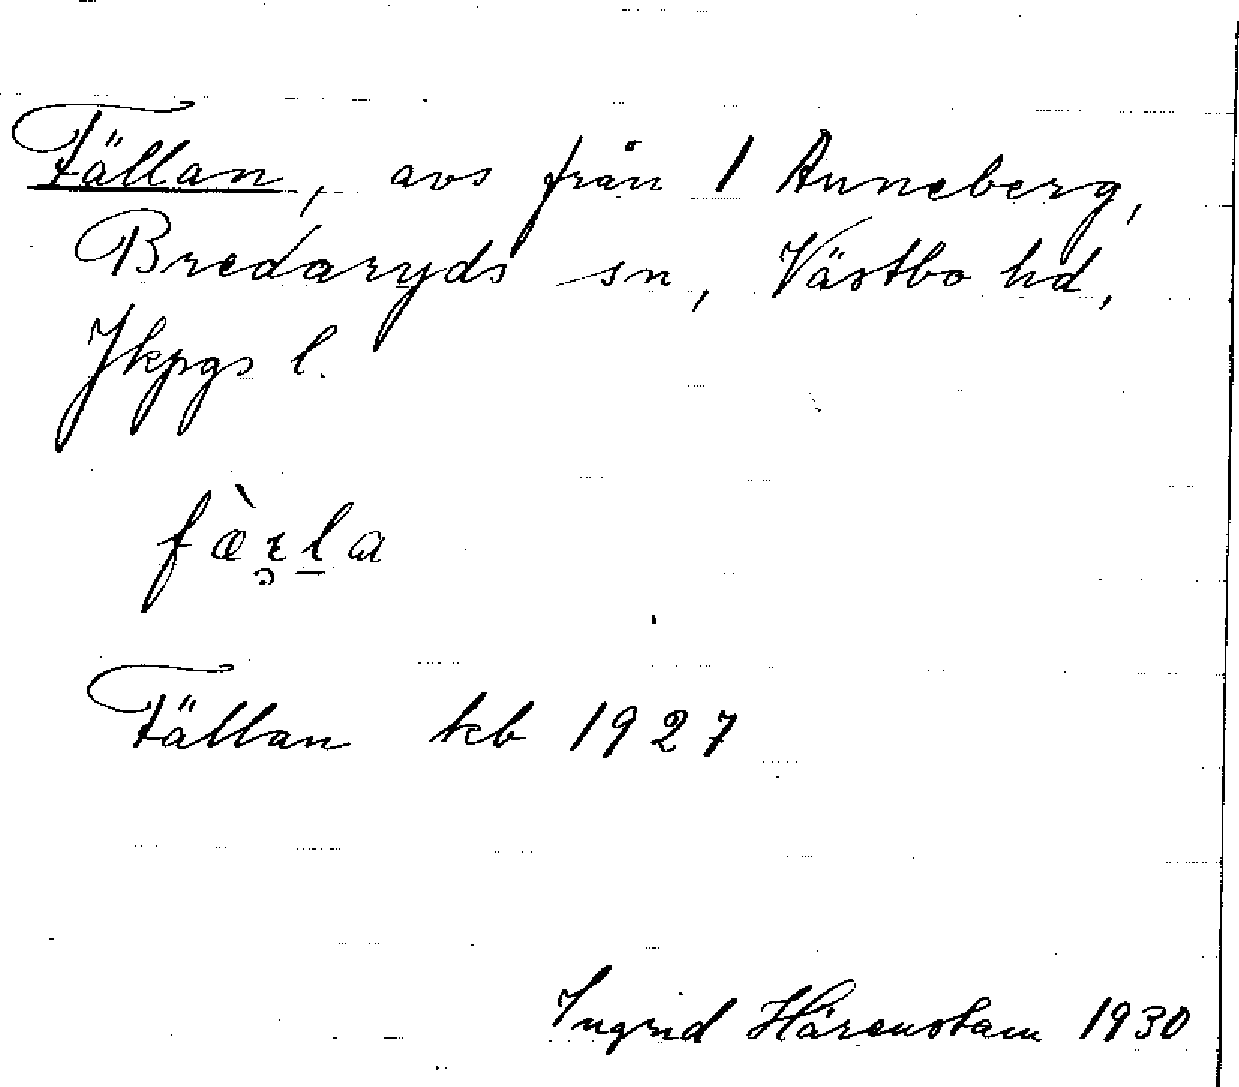 Fällan, avs från 1 Anneberg,
Bredaryds sn, Västbo hd,
Jkpgs l.
fæ̀ɽla
Fällan kb 1927
Ingrid Härenstam 1930